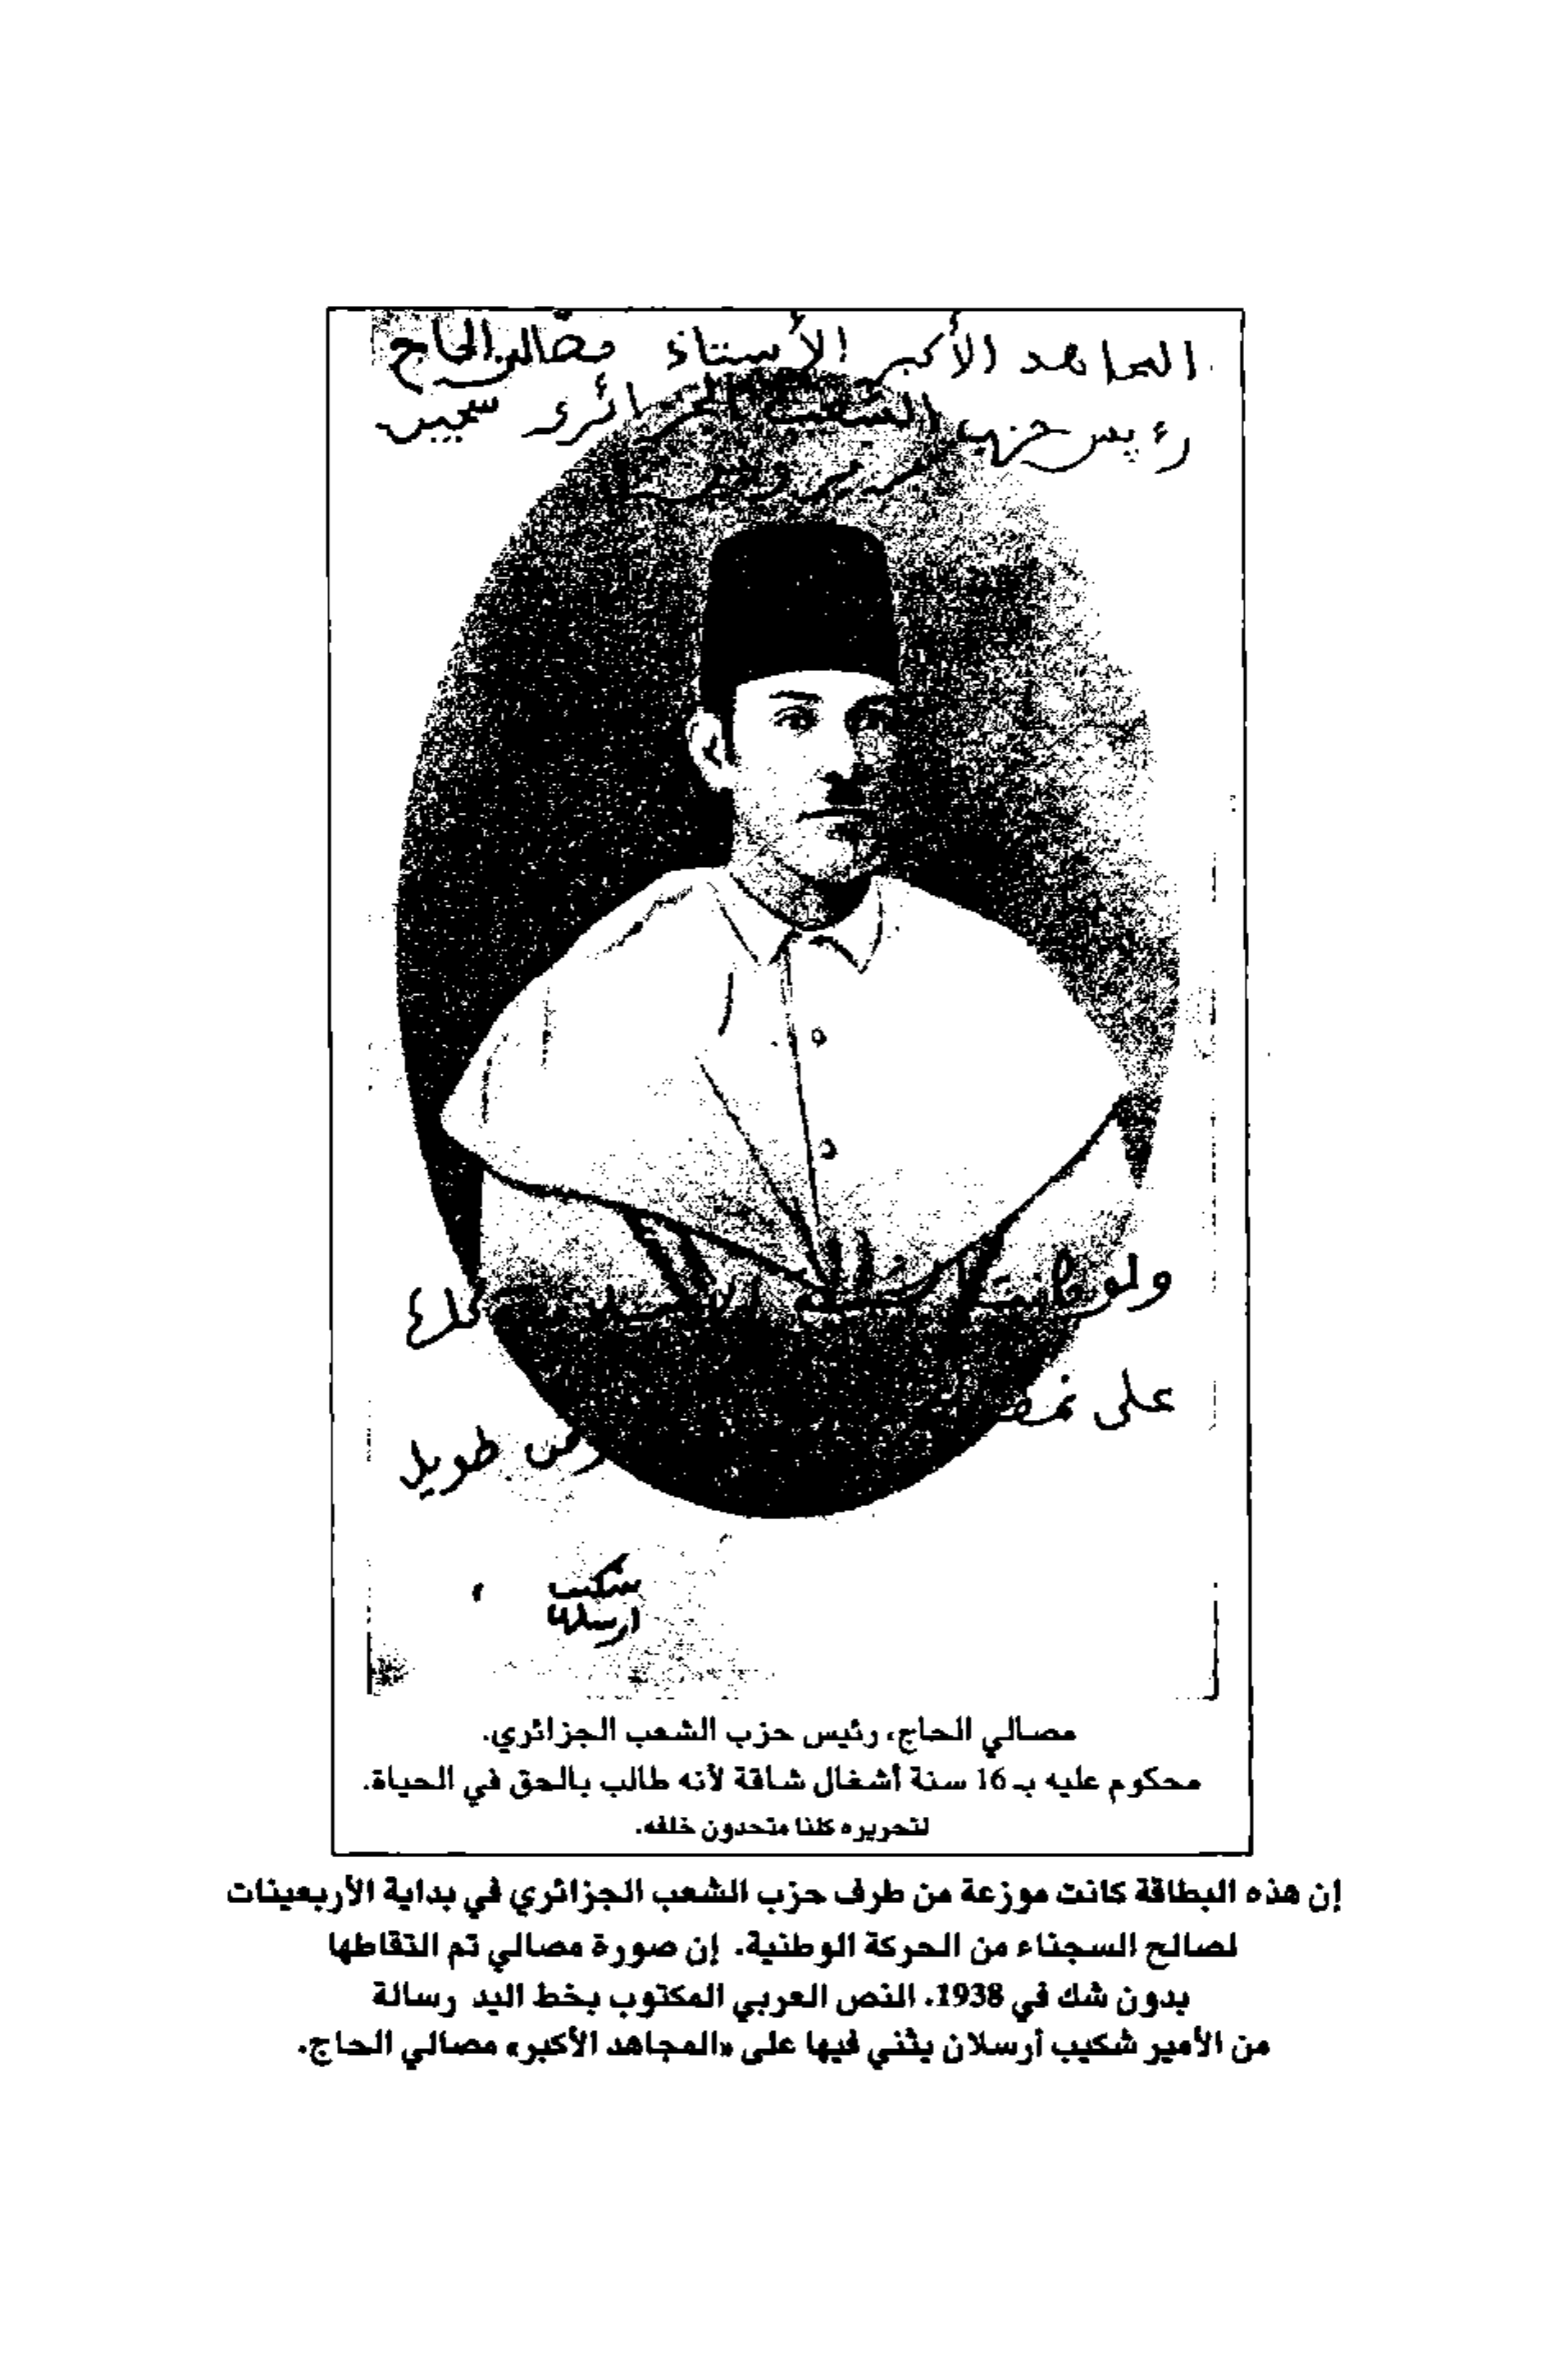 المجاهد الأكبر الأستاذ مصالي الحاج
رئيس حزب الشعب الجزائري سجين
ولو كانت
على
طويل
شكيب
ارسلان
مصالي الحاج، رئيس حزب الشعب الجزائري.
محكوم عليه بـ 16 سنة أشغال شاقة لأنه طالب بالحق في الحياة.
لتحريره كلنا متحدون خلفه.
إن هذه البطاقة كانت موزعة من طرف حزب الشعب الجزائري في بداية الأربعينات
لصالح السجناء من الحركة الوطنية. إن صورة مصالي تم التقاطها
بدون شك في 1938. النص العربي المكتوب بخط اليد رسالة
من الأمير شكيب أرسلان يثني فيها على «المجاهد الأكبر» مصالي الحاج.